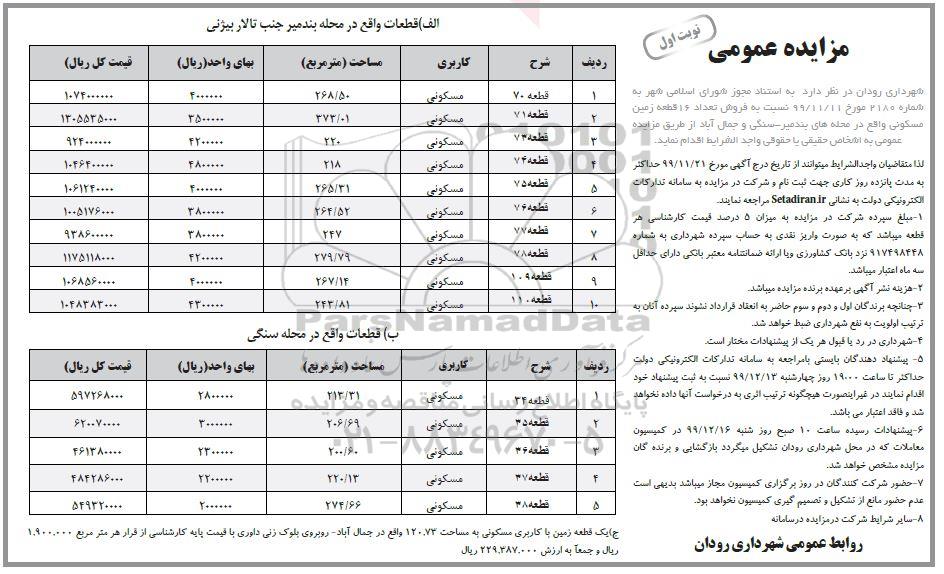 نوبت اول
مزایده عمومی
شهرداری رودان در نظر دارد به استناد مجوز شورای اسلامی شهر به
شماره ۲۱۸۰ مورخ ۹۹/۱۱/۱۱ نسبت به فروش تعداد ۱۶قطعه زمین
مسکونی واقع در محله های بندمیر-سنگی و جمال آباد از طریق مزایده
عمومی به اشخاص حقیقی یا حقوقی واجد الشرایط اقدام نماید.
لذا متقاضیان واجدالشرایط میتوانند از تاریخ درج آگهی مورخ ۹۹/۱۱/۲۱ حداکثر
به مدت پانزده روز کاری جهت ثبت نام و شرکت در مزایده به سامانه تدارکات
الکترونیکی دولت به نشانی Setadiran.ir مراجعه نمایند.
۱-مبلغ سپرده شرکت در مزایده به میزان ۵ درصد قیمت کارشناسی هر
قطعه میباشد که به صورت واریز نقدی به حساب سپرده شهرداری به شماره
۹۱۷۴۹۸۴۴۸ نزد بانک کشاورزی ویا ارائه ضمانتنامه معتبر بانکی دارای حداقل
سه ماه اعتبار میباشد.
۲-هزینه نشر آگهی برعهده برنده مزایده میباشد.
۳-چنانچه برندگان اول و دوم و سوم حاضر به انعقاد قرارداد نشوند سپرده آنان به
ترتیب اولویت به نفع شهرداری ضبط خواهد شد.
۴-شهرداری در رد یا قبول هر یک از پیشنهادات مختار است.
۵- پیشنهاد دهندگان بایستی بامراجعه به سامانه تدارکات الکترونیکی دولت
حداکثر تا ساعت ۱۹:۰۰ روز چهارشنبه ۹۹/۱۲/۱۳ نسبت به ثبت پیشنهاد خود
اقدام نمایند در غیراینصورت هیچگونه ترتیب اثری به درخواست آنها داده نخواهد
شد و فاقد اعتبار می باشد.
۶-پیشنهادات رسیده ساعت ۱۰ صبح روز شنبه ۹۹/۱۲/۱۶ در کمیسیون
معاملات که در محل شهرداری رودان تشکیل میگردد بازگشایی و برنده گان
مزایده مشخص خواهد شد.
۷-حضور شرکت کنندگان در روز برگزاری کمیسیون مجاز میباشد بدیهی است
عدم حضور مانع از تشکیل و تصمیم گیری کمیسیون نخواهد بود.
۸-سایر شرایط شرکت درمزایده درسامانه
روابط عمومی شهرداری رودان
الف)قطعات واقع در محله بندمیر جنب تالار بیژنی
ردیف شرح کاربری مساحت (مترمربع) بهای واحد(ریال) قیمت کل ریال)
۱ قطعه ۷۰ مسکونی ۲۶۸/۵۰ ۴۰۰۰۰۰۰ ۱۰۷۴۰۰۰۰۰۰
۲ قطعه۷۱ مسکونی ۳۷۳/۰۱ ۳۵۰۰۰۰۰ ۱۳۰۵۵۳۵۰۰۰
۳ قطعه۷۳ مسکونی ۲۲۰ ۴۲۰۰۰۰۰ ۹۲۴۰۰۰۰۰۰
۴ قطعه۷۴ مسکونی ۲۱۸ ۴۸۰۰۰۰۰ ۱۰۴۶۴۰۰۰۰۰
۵ قطعه۷۵ مسکونی ۲۶۵/۳۱ ۴۰۰۰۰۰۰ ۱۰۶۱۲۴۰۰۰۰
۶ قطعه۷۶ مسکونی ۲۶۴/۵۲ ۳۸۰۰۰۰۰ ۱۰۰۵۱۷۶۰۰۰
۷ قطعه۷۷ مسکونی ۲۴۷ ۳۸۰۰۰۰۰ ۹۳۸۶۰۰۰۰۰
۸ قطعه۷۸ مسکونی ۲۷۹/۷۹ ۴۲۰۰۰۰۰ ۱۱۷۵۱۱۸۰۰۰
۹ قطعه۱۰۹ مسکونی ۲۶۷/۱۴ ۴۰۰۰۰۰۰ ۱۰۶۸۵۶۰۰۰۰
۱۰ قطعه۱۱۰ مسکونی ۲۴۳/۸۱ ۴۳۰۰۰۰۰ ۱۰۴۸۳۸۳۰۰۰
ParsNamadData
ب) قطعات واقع در محله سنگی
ردیف شرح کاربری مساحت (مترمربع) بهای واحد(ریال) قیمت کل ریال)
۱ قطعه۳۴ مسکونی ۲۱۳/۳۱ ۲۸۰۰۰۰۰ ۵۹۷۲۶۸۰۰۰
۲ قطعه۳۵ مسکونی ۲۰۶/۶۹ ۳۰۰۰۰۰۰ ۶۲۰۰۷۰۰۰۰
۳ قطعه۳۶ مسکونی ۲۰۰/۶۰ ۲۳۰۰۰۰۰ ۴۶۱۳۸۰۰۰۰
۴ قطعه۳۷ مسکونی ۲۲۰/۱۳ ۲۲۰۰۰۰۰ ۴۸۴۲۸۶۰۰۰
۵ قطعه۳۸ مسکونی ۲۷۴/۶۶ ۲۰۰۰۰۰۰ ۵۴۹۳۲۰۰۰۰
پایگاه اطلاع رسانی مناقصه و مزایده
۰۲۱-۸۸۳۴۹۶۷۰-۵
ج)یک قطعه زمین با کاربری مسکونی به مساحت ۱۲۰.۷۳ واقع در جمال آباد- روبروی بلوک زنی داوری با قیمت پایه کارشناسی از قرار هر متر مربع ۱.۹۰۰.۰۰۰
ریال و جمعاً به ارزش ۲۲۹.۳۸۷.۰۰۰ ریال